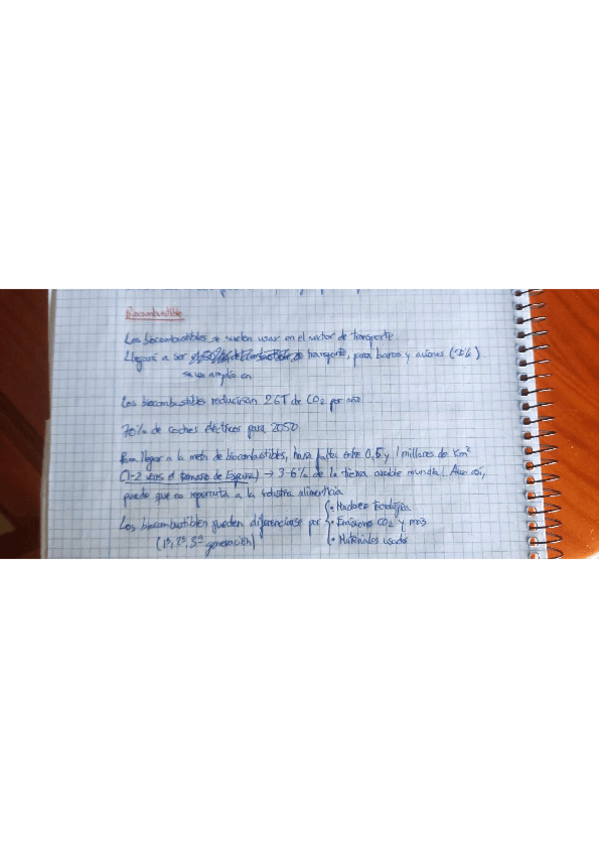 Biocombustible
Los biocombustibles se suelen usar en el sector de transporte.
Llegará a ser el 50% de combustibles de transporte, para barcos y aviones
se usa amplio en
Los biocombustibles reducirán 2GT de CO2 por año
70% de coches eléctricos para 2050
Para llegar a la meta de biocombustibles, hará falta entre 0,5 y 1 millones de Km²
(1-2 veces el tamaño de España) → 3-6% de la tierra arable mundial. Aun así,
puede que no reporcuta a la industria alimenticia
Los biocombustibles pueden diferenciarse por
(1ª, 2ª, 3ª generación)
• Madurez Tecnológica
• Emisiones CO2 y más
• Materiales usados